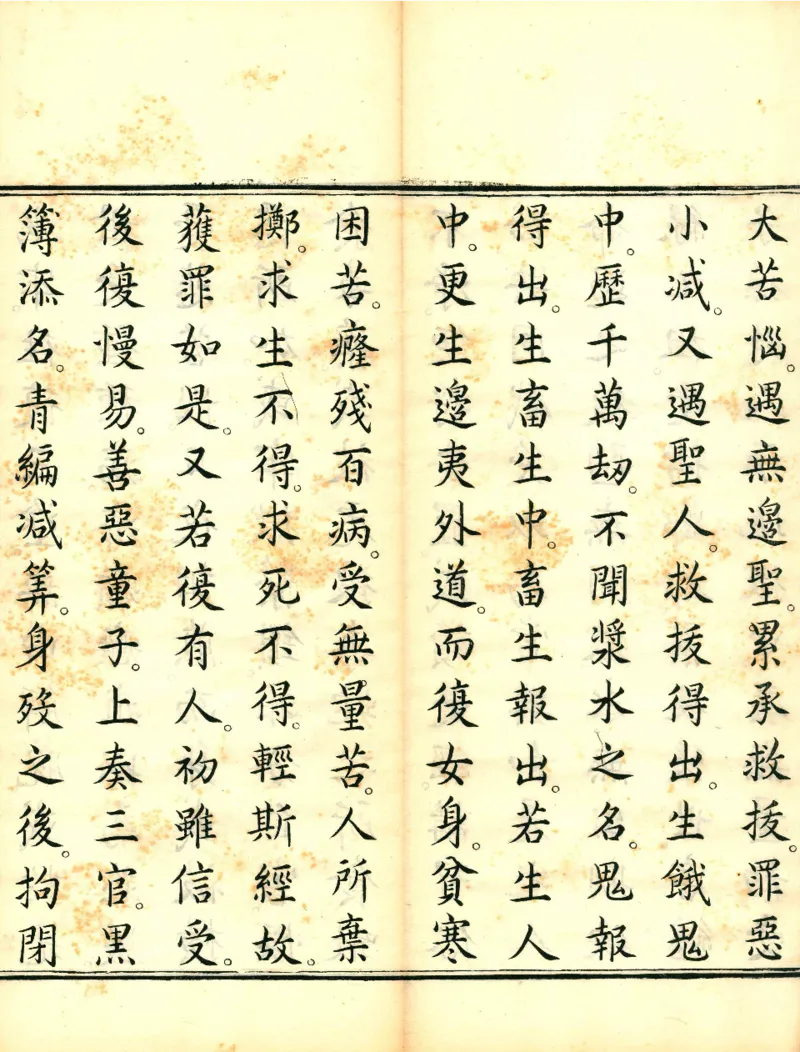 大苦惱。遇無邊聖。累承救拔。罪惡
小減。又遇聖人。救拔得出。生餓鬼
中。歷千萬劫。不聞漿水之名。鬼報
得出。生畜生中。畜生報出。若生人
中。更生邊夷外道。而復女身。貧寒
困苦。癃殘百病。受無量苦。人所棄
擲。求生不得。求死不得。輕斯經故。
獲罪如是。又若復有人。初雖信受。
後復慢易。善惡童子。上奏三官。黑
簿添名。青編減筭。身歿之後。拘閉